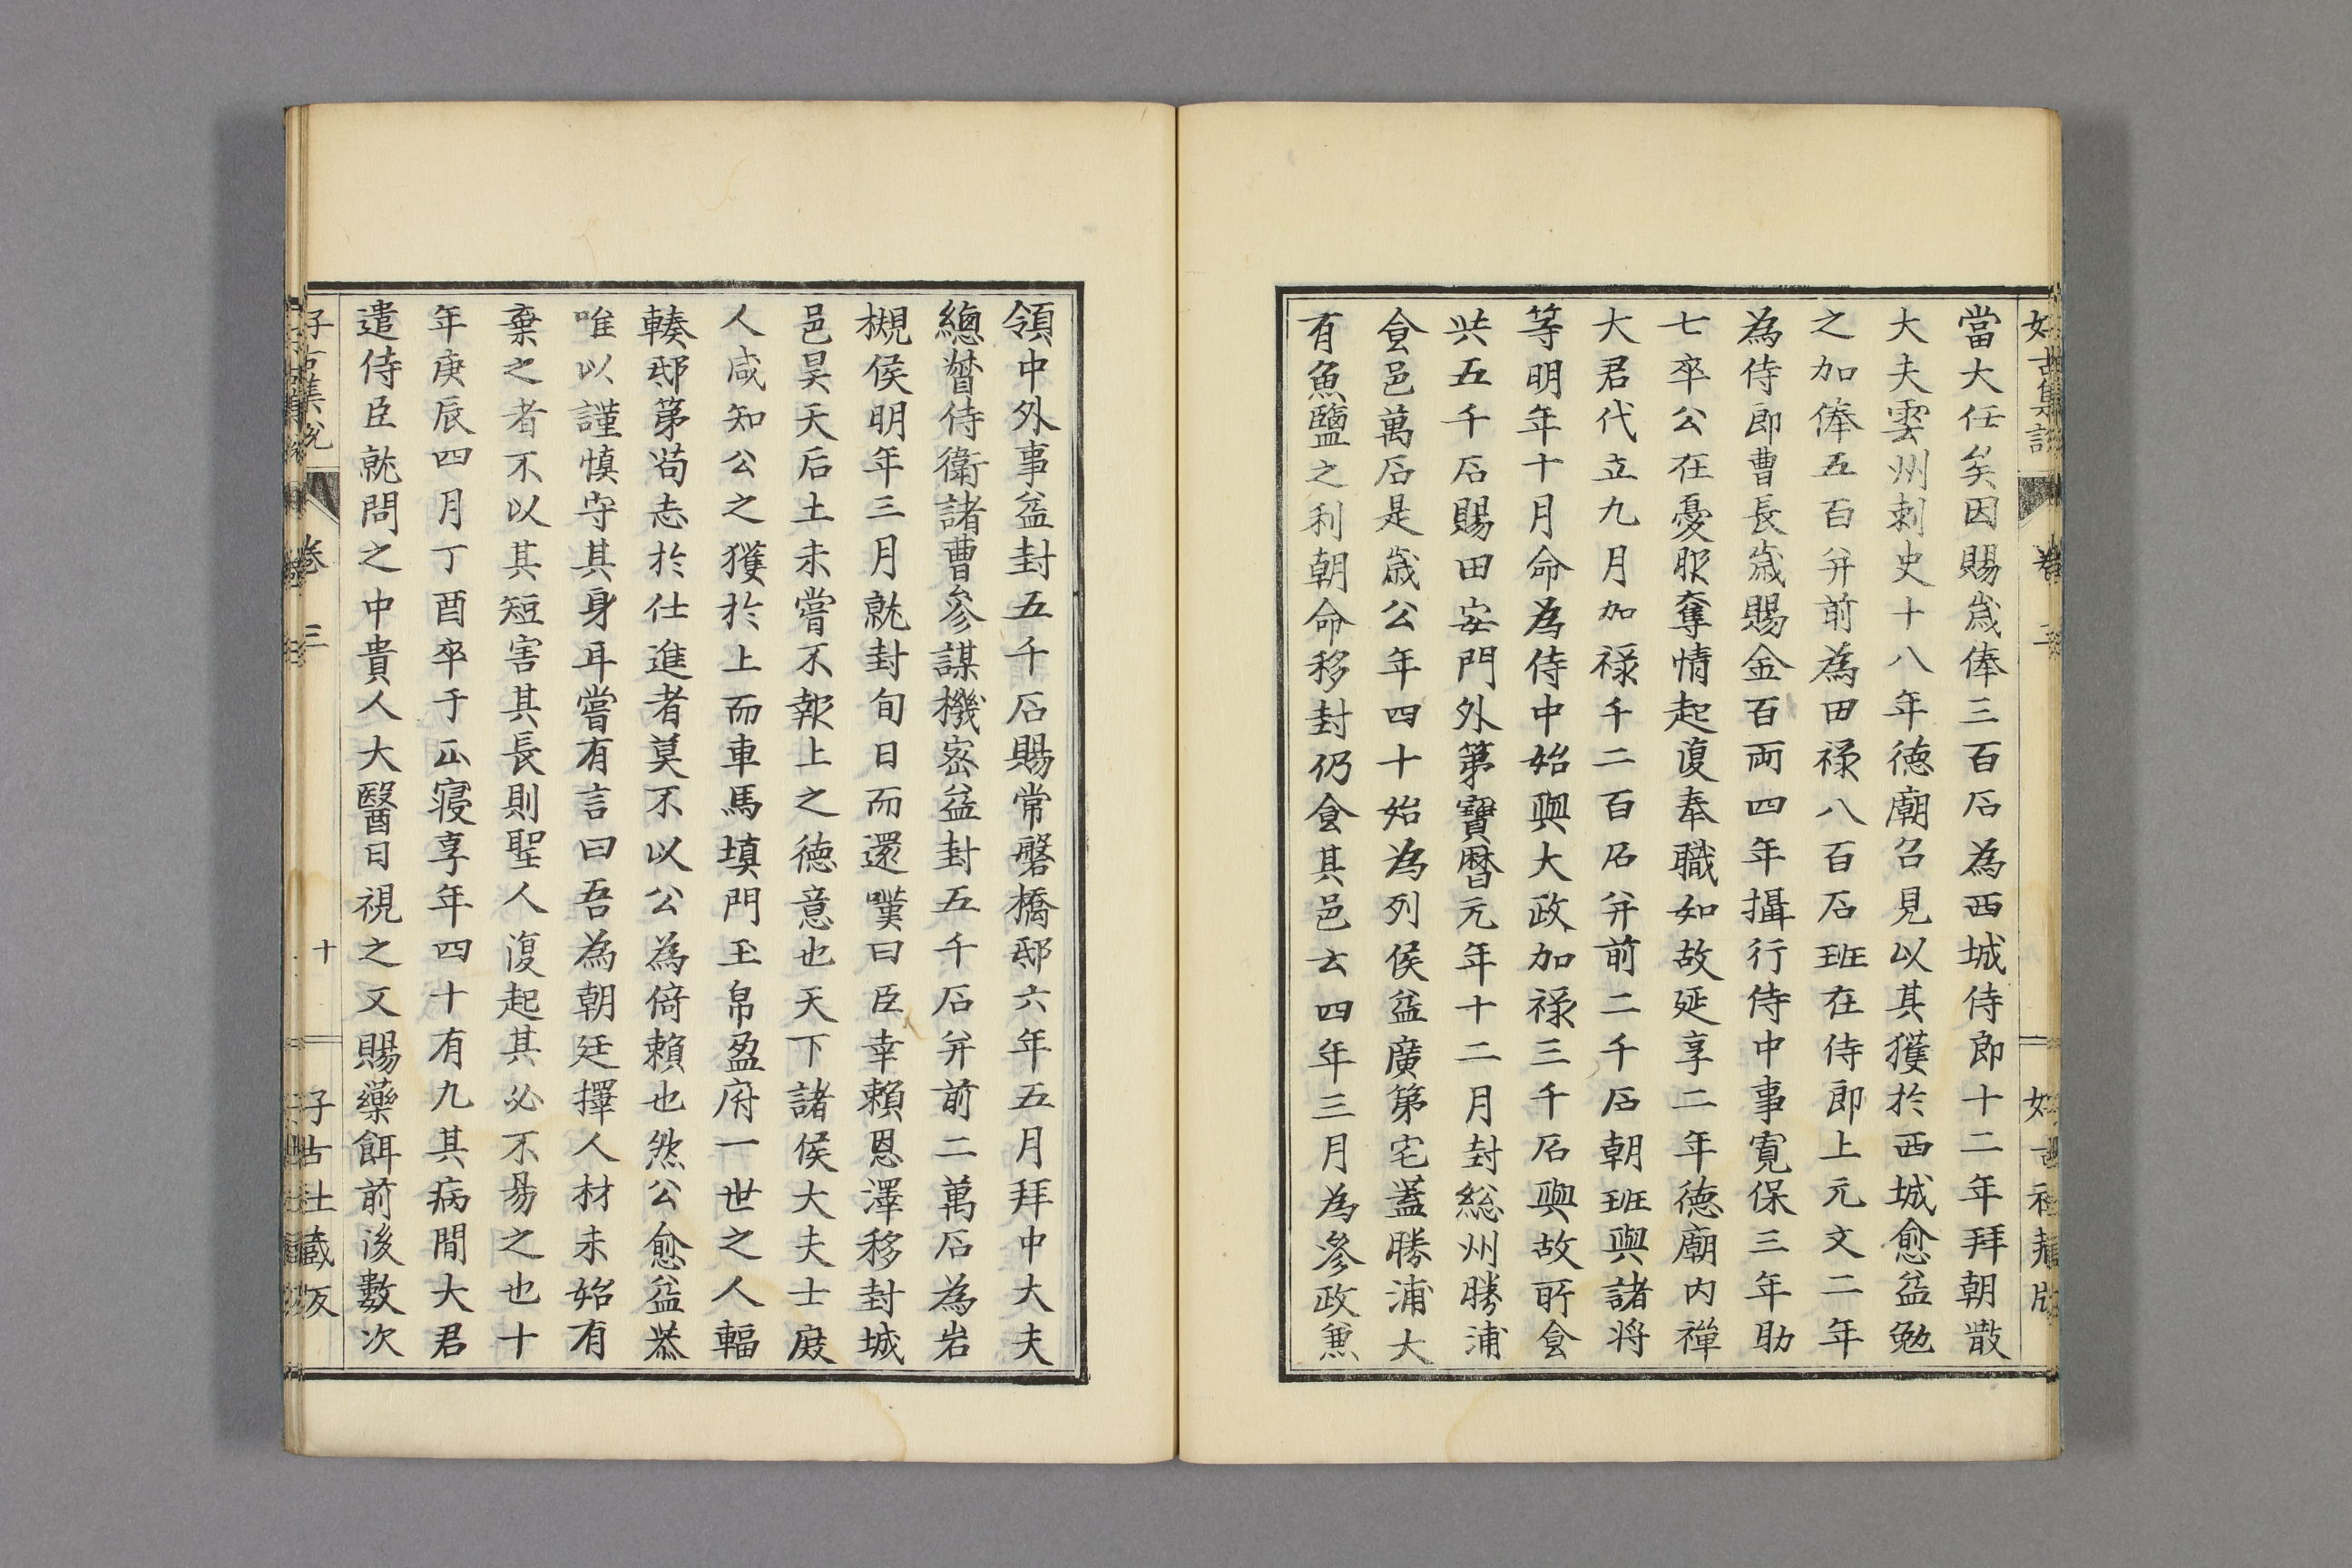 當大任矣因賜歳俸三百石為西城侍郎十二年拜朝散
大夫雲州刺史十八年德廟召見以其獲於西城愈益勉
之加俸五百弁前為田禄八百石班在侍郎上元文二年
為侍郎曹長歳賜金百両四年攝行侍中事寬保三年助
七卒公在憂服奪情起復奉職如故延享二年德廟內禪
大君代立九月加禄千二百石弁前二千石朝班與諸将
等明年十月命為侍中始與大政加禄三千石與故所食
共五千石賜田安門外第寶暦元年十二月封総州勝浦
食邑萬石是歳公年四十始為列侯益廣第宅蓋勝浦大
有魚鹽之利朝命移封仍食其邑云四年三月為參政兼
領中外事益封五千石賜常磐橋邸六年五月拜中大夫
總督侍衛諸曹參謀機密益封五千石弁前二萬石為岩
槻侯明年三月就封旬日而還嘆曰臣幸賴恩澤移封城
邑昊天后土未嘗不報上之德意也天下諸侯大夫士庶
人咸知公之獲於上而車馬填門玉帛盈府一世之人輻
輳邸第苟志於仕進者莫不以公為倚賴也然公愈益恭
唯以謹慎守其身耳嘗有言曰吾為朝廷擇人材未始有
棄之者不以其短害其長則聖人復起其必不易之也十
年庚辰四月丁酉卒于正寝享年四十有九其病間大君
遣侍臣就問之中貴人大醫日視之又賜藥餌前後數次
卷三
十